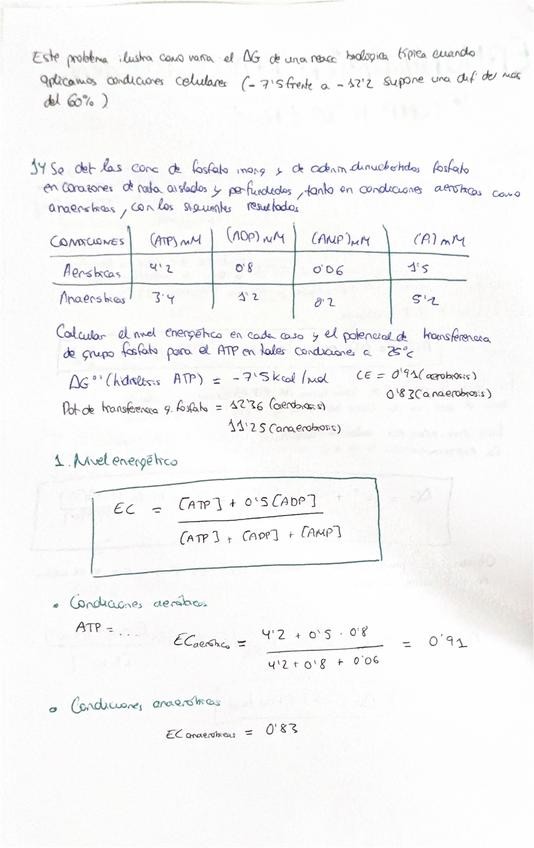 Este problema ilustra como varia el ΔG de una reacc biologica típica cuando
aplicamos condiciones celulares (-7'5 frente a -12'2 supone una dif del mas
del 60%)
14 Se det las conc de fosfato inorg y de adenin dinucleotidos fosfato
en corazones de rata aislados y perfundidos, tanto en condiciones aeróbicas como
anaeróbicas, con los siguientes resultados
CONDICIONES (ATP) mM (ADP) mM (AMP) mM (Pi) mM
Aeróbicas 4'2 0'8 0'06 1'5
Anaeróbicas 3'4 1'2 0'2 5'2
Calcular el nivel energético en cada caso y el potencial de transferencia
de grupo fosfato para el ATP en tales condiciones a 25°C
ΔG°' (hidrólisis ATP) = -7'5 kcal/mol CE = 0'91 (aerobiosis)
0'83 (anaerobiosis)
Pot de transferencia g. fosfato = 12'36 (aerobiosis)
11'25 (anaerobiosis)
1. Nivel energético
EC = [ATP] + 0'5 [ADP] / [ATP] + [ADP] + [AMP]
• Condiciones aeróbicas
ATP = ... EC aeróbico = 4'2 + 0'5 · 0'8 / 4'2 + 0'8 + 0'06 = 0'91
• Condiciones anaeróbicas
EC anaeróbicas = 0'83